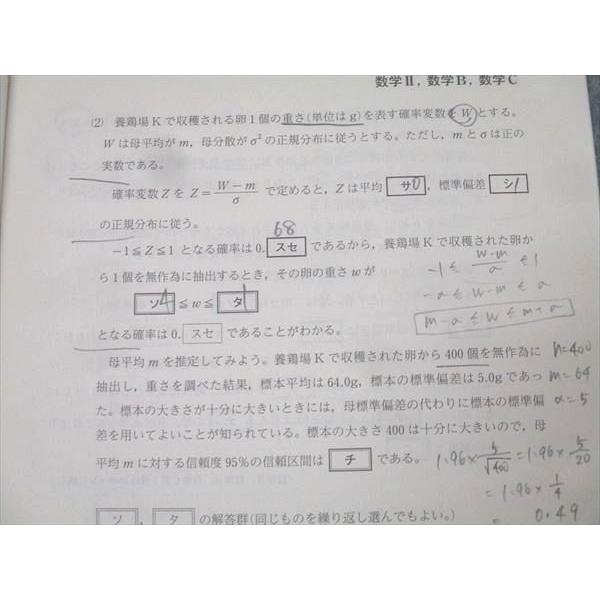 数学Ⅱ，数学B，数学C
(2) 養鶏場Kで収穫される卵1個の重さ(単位はg)を表す確率変数をWとする。
Wは母平均がm，母分散がσ²の正規分布に従うとする。ただし，mとσは正の
実数である。
確率変数ZをZ=\frac{W-m}{σ}で定めると，Zは平均 サ0，標準偏差 シ1
の正規分布に従う。
68
-1≦Z≦1となる確率は0.スセであるから，養鶏場Kで収穫された卵か
ら1個を無作為に抽出するとき，その卵の重さwが
-1≦\frac{w-m}{a}≦1
-a≦w-m≦a
ソ4≦w≦タ1
m-a≦w≦m+a
となる確率は0.スセであることがわかる。
母平均mを推定してみよう。養鶏場Kで収穫された卵から400個を無作為に
n=400
抽出し，重さを調べた結果，標本平均は64.0g，標本の標準偏差は5.0gであっ
m=64
た。標本の大きさが十分に大きいときには，母標準偏差の代わりに標本の標準偏
a=5
差を用いてよいことが知られている。標本の大きさ400は十分に大きいので，母
平均mに対する信頼度95%の信頼区間は チ である。
1.96×\frac{5}{\sqrt{400}}=1.96×\frac{5}{20}
=1.96×\frac{1}{4}
=0.49
ソ，タの解答群(同じものを繰り返し選んでもよい。)